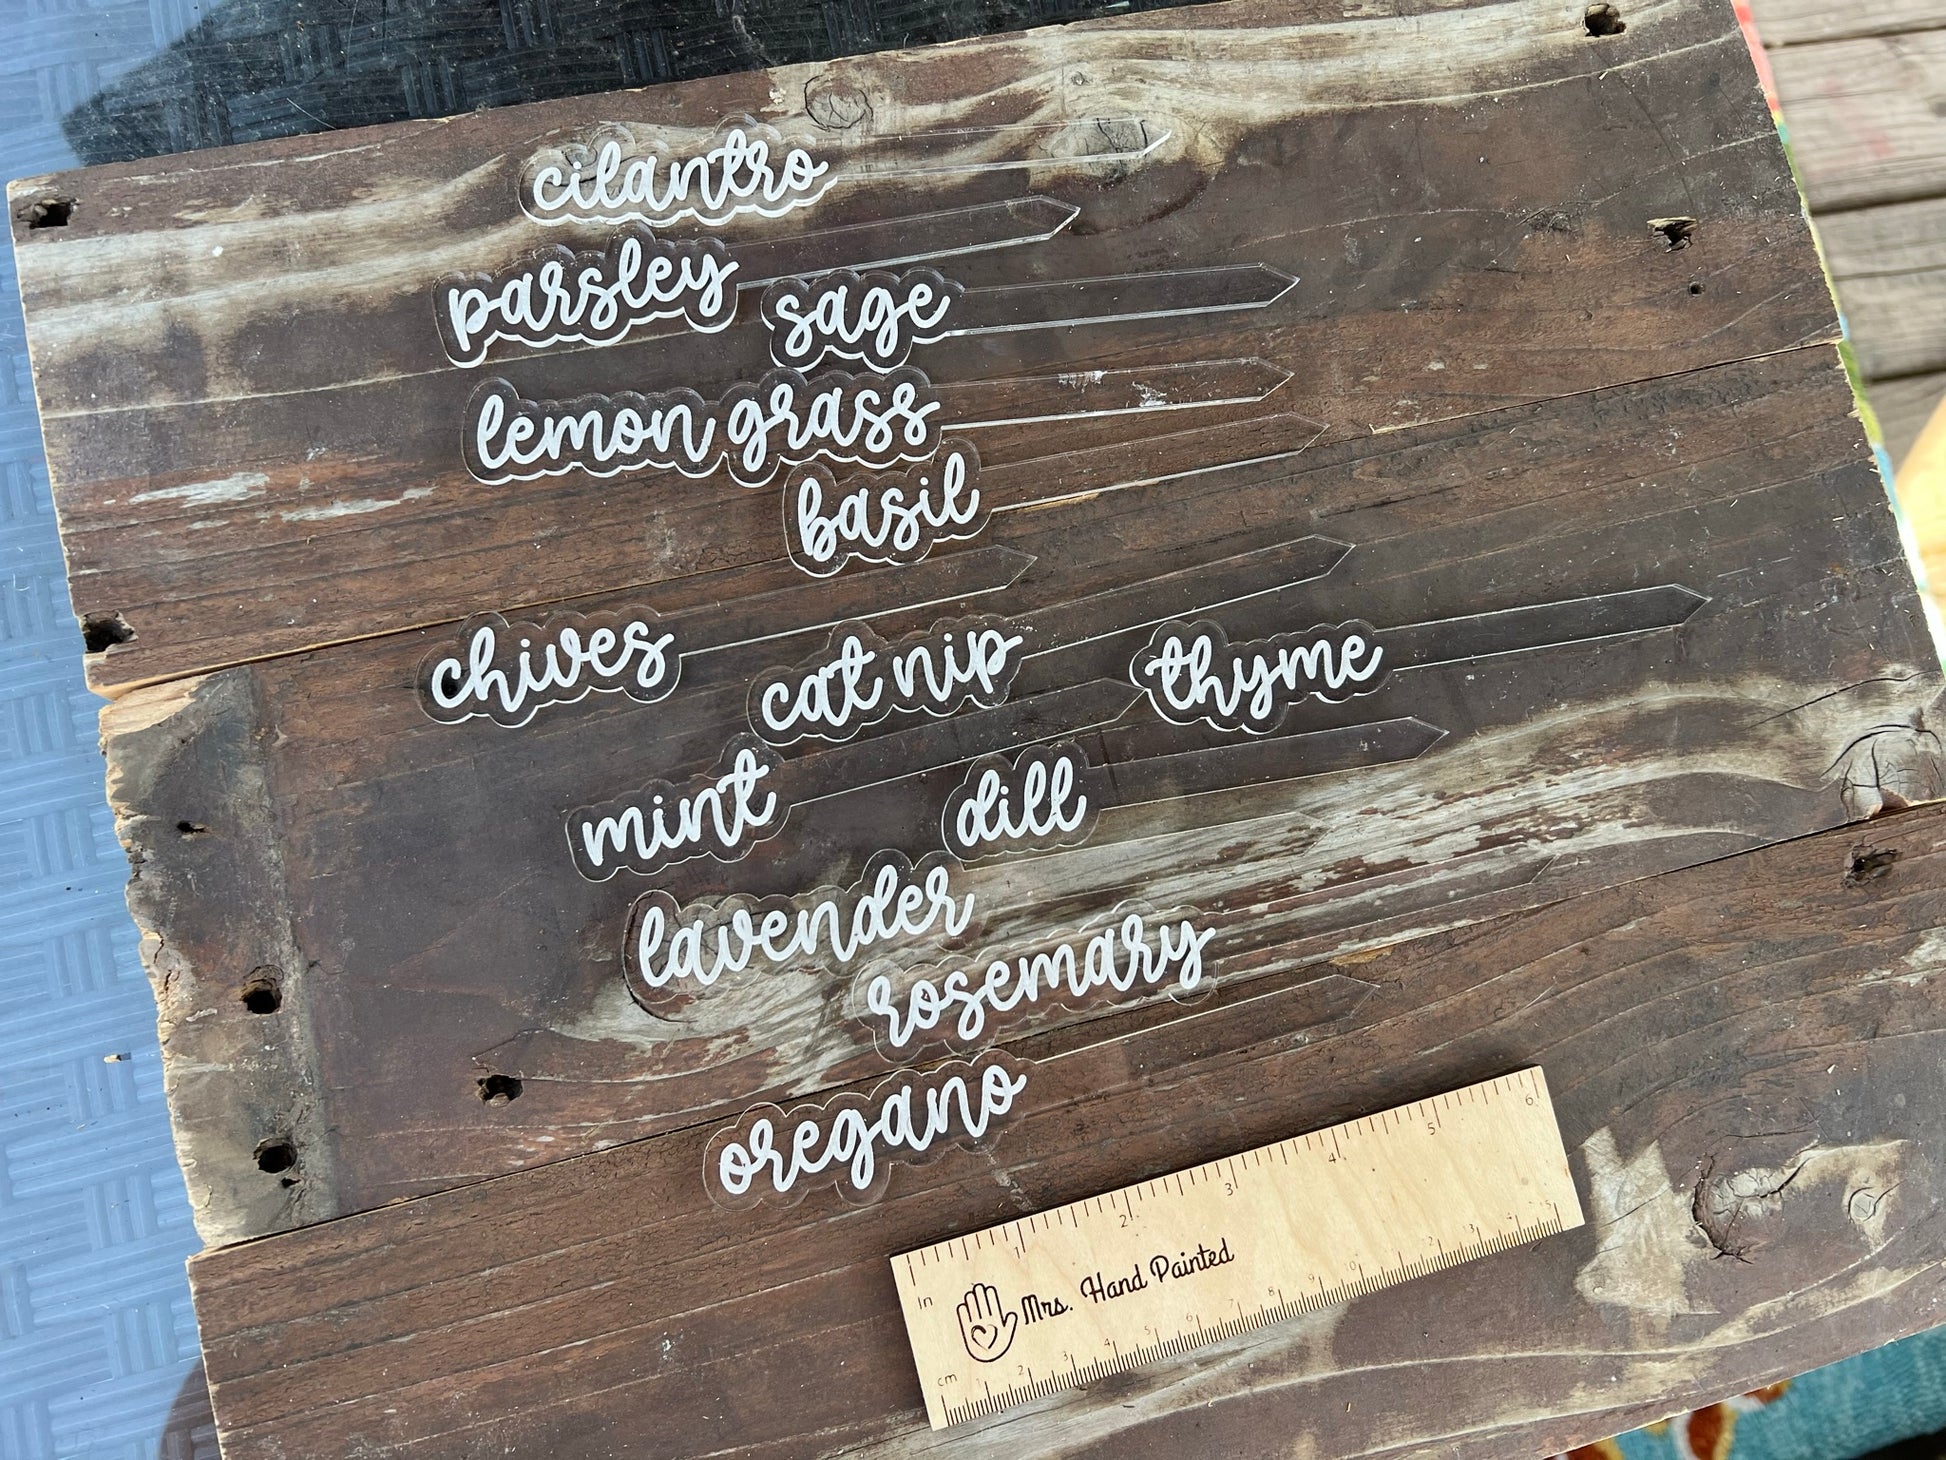 cilantro
parsley
sage
lemon grass
basil
chives
cat nip
thyme
mint
dill
lavender
rosemary
oregano
1 2 3 4 5 6
in
Mrs. Hand Painted
cm
1 2 3 4 5 6 7 8 9 10 11 12 13 14 15